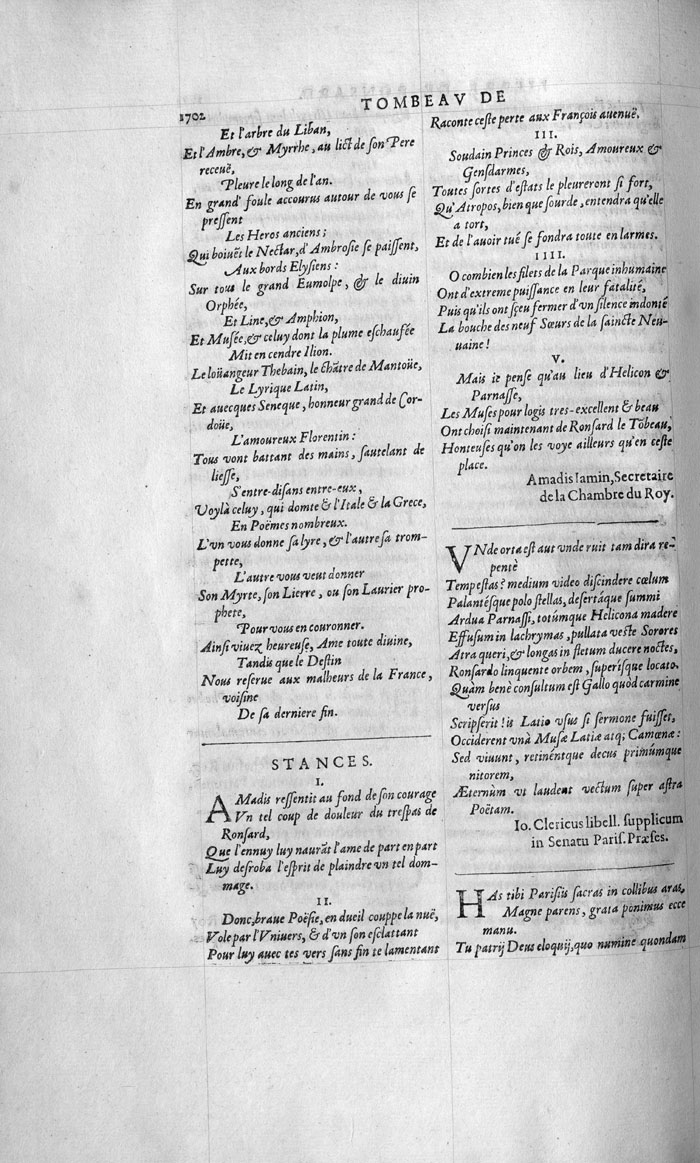 1702
TOMBEAV DE
Et l'arbre du Liban,
Et l'Ambre, & Myrrhe, au lict de ſon Pere
receuë,
Pleure le long de l'an.
En grand' foule accourus autour de vous ſe
preſſent
Les Heros anciens;
Qui boiuẽt le Nectar, d'Ambroſie ſe paiſſent,
Aux bords Elyſiens:
Sur tous le grand Eumolpe, & le diuin
Orphée,
Et Line, & Amphion,
Et Muſée, & celuy dont la plume eſchauſée
Mit en cendre Ilion.
Le loüangeur Thebain, le chãtre de Mantoüe,
Le Lyrique Latin,
Et auecques Seneque, honneur grand de Cor-
doüe,
L'amoureux Florentin:
Tous vont battant des mains, ſautelant de
lieſſe,
S'entre-diſans entre-eux,
Voylà celuy, qui domte & l'Itale & la Grece,
En Poëmes nombreux.
L'vn vous donne ſa lyre, & l'autre ſa trom-
pette,
L'autre vous veut donner
Son Myrte, ſon Lierre, ou ſon Laurier pro-
phete,
Pour vous en couronner.
Ainſi viuez heureuſe, Ame toute diuine,
Tandis que le Deſtin
Nous reſerue aux malheurs de la France,
voiſine
De ſa derniere fin.
STANCES.
I.
AMadis reſſentit au fond de ſon courage
Vn tel coup de douleur du treſpas de
Ronſard,
Que l'ennuy luy naurãt l'ame de part en part
Luy deſroba l'eſprit de plaindre vn tel dom-
mage.
II.
Donc, braue Poëſie, en dueil couppe la nuë,
Vole par l'Vniuers, & d'vn ſon eſclattant
Pour luy auec tes vers ſans fin te lamentant
Raconte ceſte perte aux François auenuë.
III.
Soudain Princes & Rois, Amoureux &
Genſdarmes,
Toutes ſortes d'eſtats le pleureront ſi fort,
Qu'Atropos, bien que ſourde, entendra qu'elle
a tort,
Et de l'auoir tué ſe fondra toute en larmes.
IIII.
O combien les filets de la Parque inhumaine
Ont d'extreme puiſſance en leur fatalité,
Puis qu'ils ont ſçeu fermer d'vn ſilence indonté
La bouche des neuf Sœurs de la ſaincte Neu-
uaine!
V.
Mais ie penſe qu'au lieu d'Helicon &
Parnaſſe,
Les Muſes pour logis tres-excellent & beau
Ont choiſi maintenant de Ronſard le Tõbeau,
Honteuſes qu'on les voye ailleurs qu'en ceſte
place.
Amadis Iamin, Secretaire
de la Chambre du Roy.
VNde orta eſt aut vnde ruit tam dira re-
pentè
Tempeſtas? medium video diſcindere cœlum
Palantéſque polo ſtellas, deſertáque ſummi
Ardua Parnaſſi, totúmque Helicona madere
Effuſum in lachrymas, pullata veſte Sorores
Atra queri, & longas in fletum ducere noctes,
Ronſardo linquente orbem, ſuperíſque locato.
Quàm benè conſultum eſt Gallo quòd carmine
verſus
Scripſerit! is Latio vſus ſi ſermone fuiſſet,
Occiderent vnà Muſæ Latiæ atq; Camœnæ:
Sed viuunt, retinéntque decus primúmque
nitorem,
Æternùm vt laudent vectum ſuper aſtra
Poëtam.
Io. Clericus libell. ſupplicum
in Senatu Pariſ. Præſes.
HAs tibi Pariſiis ſacras in collibus aras,
Magne parens, grata ponimus ecce
manu.
Tu patrij Deus eloquij, quo numine quondam